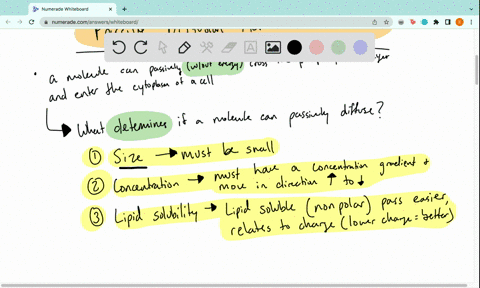 Numerade Whiteboard
numerade.com/answers/whiteboard/
• a molecule can passively (w/out energy) cross
and enter the cytoplasm of a cell
What determines if a molecule can passively diffuse?
① Size → must be small
② Concentration → must have a concentration gradient +
move in direction ↑ to ↓
③ Lipid solubility → Lipid soluble (nonpolar) pass easier,
relates to charge (lower charge = better)